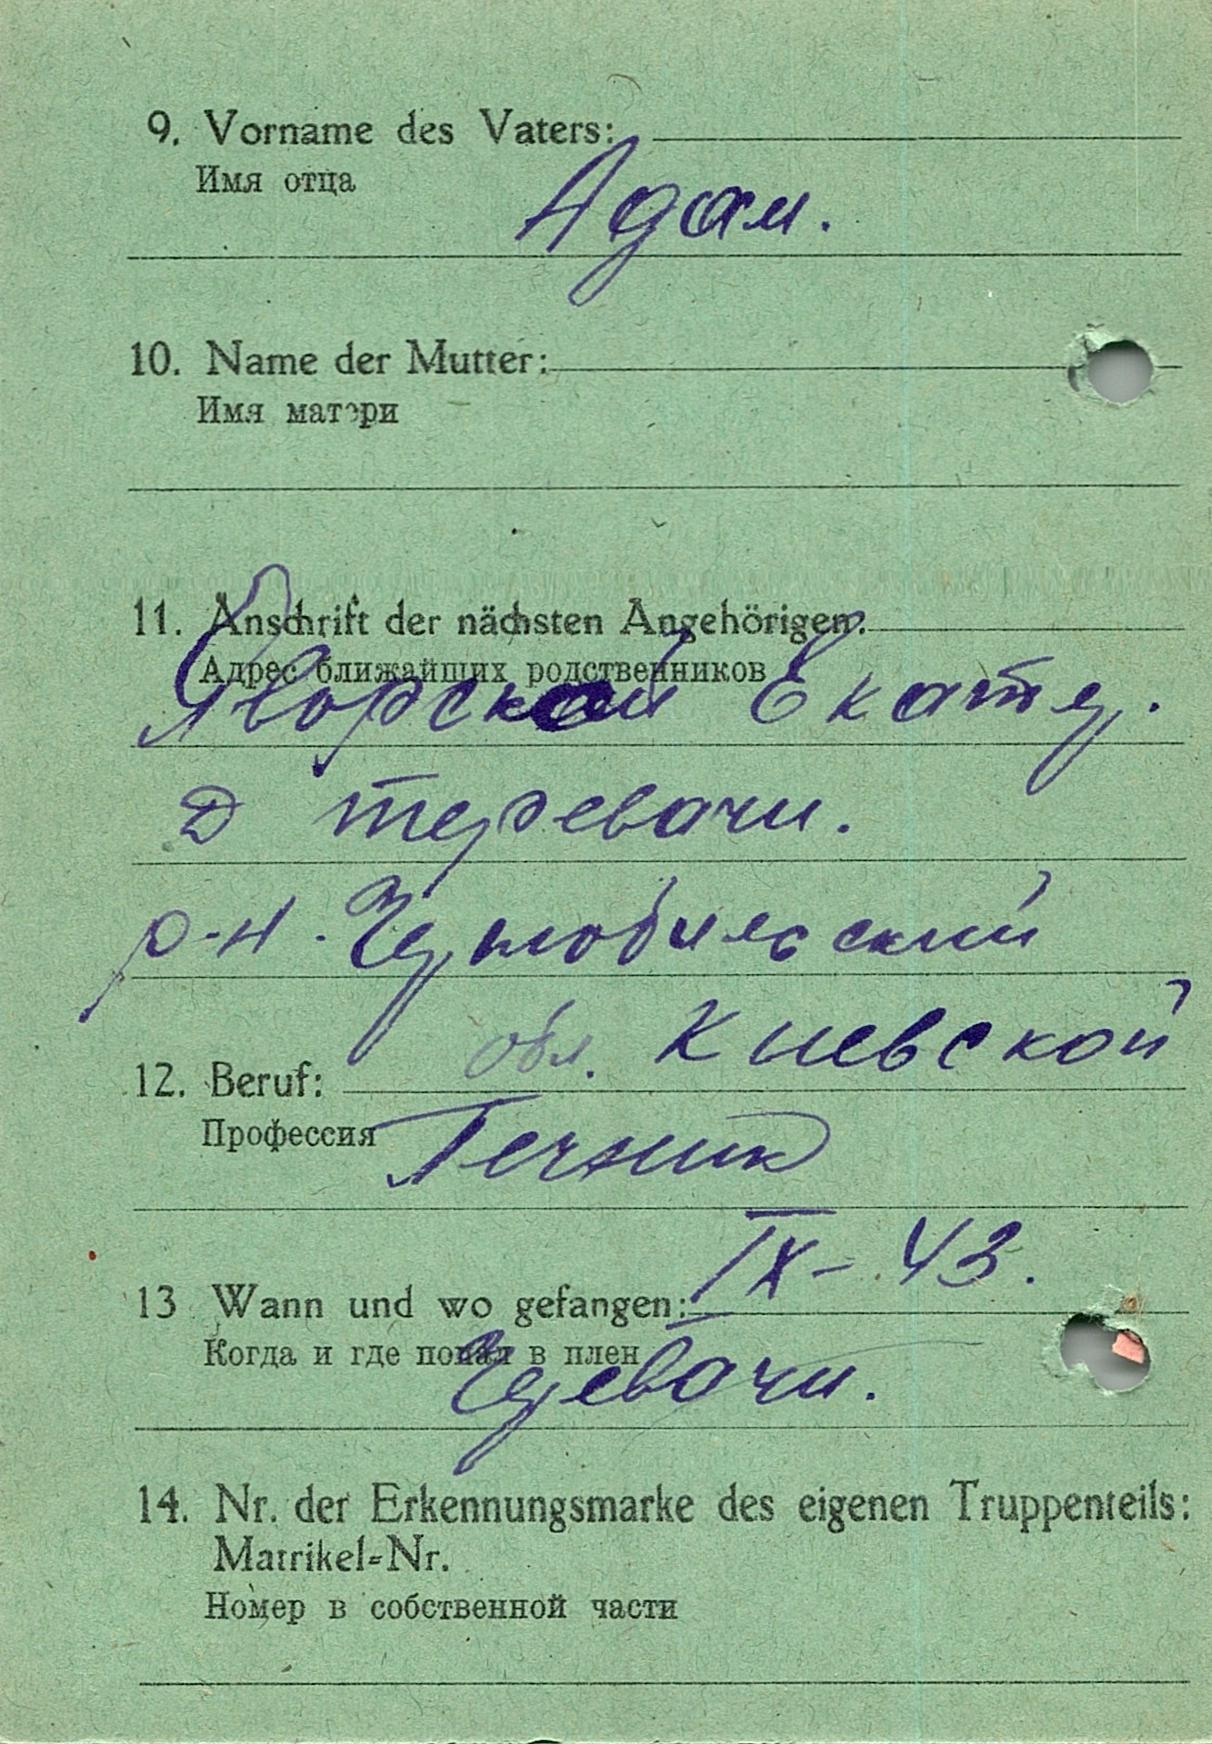 9. Vorname des Vaters:
Имя отца
Адам.
10. Name der Mutter:
Имя матери
11. Anschrift der nächsten Angehörigen:
Адрес ближайших родственников
Яворской Екатер.
д теревачи.
р-н. Чернобильский
обл. Киевской
12. Beruf:
Профессия
Течник
IX - 43.
13 Wann und wo gefangen:
Когда и где попал в плен
14. Nr. der Erkennungsmarke des eigenen Truppenteils:
Matrikel=Nr.
Номер в собственной части